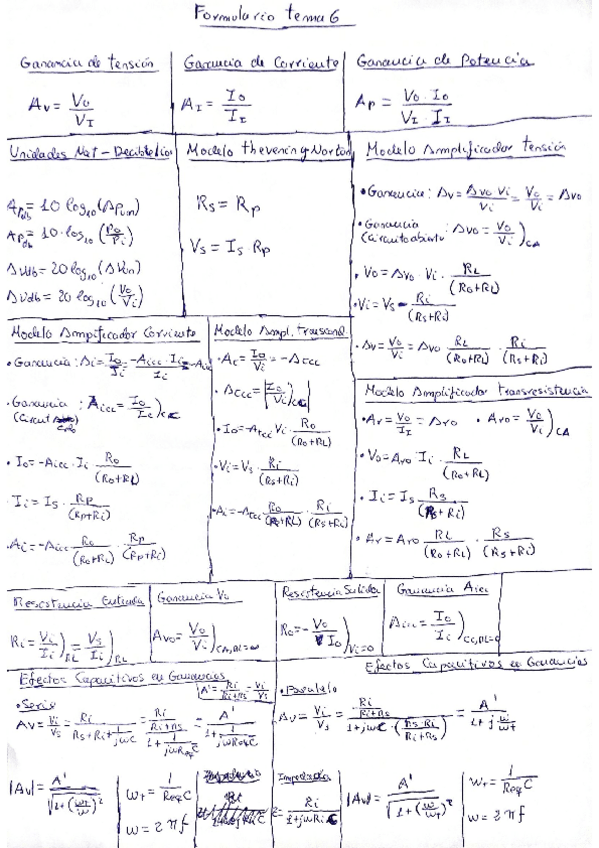 Formulario tema 6
Ganancia de tensión
Av = Vo/VI
Ganancia de Corriente
AI = Io/II
Ganancia de Potencia
Ap = Vo · Io / VI · II
Unidades Nat - Decibelio
Apdb = 10 log10 (Apun)
Apdb = 10 · log10 (Po/Pi)
Avdb = 20 log10 (Avun)
Avdb = 20 log10 (Vo/Vi)
Modelo Thevenin y Norton
Rs = Rp
Vs = Is · Rp
Modelo Amplificador tensión
• Ganancia: Av = Avo Vi/Vi = Vo/Vi = Avo
• Ganancia (Circuito abierto): Avo = Vo/Vi)CA
• Vo = Avo · Vi · RL/(Ro+RL)
• Vi = Vs Ri/(Rs+Ri)
• Av = Vo/Vi = Avo RL/(Ro+RL) · Ri/(Rs+Ri)
Modelo Ampificador Corriente
• Ganancia: Ai = Io/Ii = -Aicc · Ii/Ii = -Aicc
• Ganancia: Aicc = Io/Ic)cc
• Io = -Aicc · Ii · Ro/(Ro+RL)
• Ii = Is · Rp/(Rp+Ri)
• Ai = -Aicc Ro/(Ro+RL) · Rp/(Rp+Ri)
Modelo Ampl. transcond
• Ac = Io/Vi = -Accc
• Accc = |Io/Vi|)cc
• Io = -Accc Vi · Ro/(Ro+RL)
• Vi = Vs · Ri/(Rs+Ri)
• Ai = -Accc Ro/(Ro+RL) · Ri/(Rs+Ri)
Modelo Amplificador transresistencia
• Ar = Vo/II = Aro • Aro = Vo/Vi)CA
• Vo = Aro Ii · RL/(Ro+RL)
• Ii = Is · Rs/(Rs+Ri)
• Ar = Aro RL/(Ro+RL) · Rs/(Rs+Ri)
Resistencia Entrada
Ri = Vi/Ii)RL = Vs/Ii)RL
Ganancia Vo
Avo = Vo/Vi)CA, RL=∞
Resistencia Salida
Ro = - Vo/Io)Vi=0
Ganancia Aicc
Aicc = Io/Ii)CC, RL=0
Efectos Capacitivos en Ganancias
A' = Ri/Ri+Rs = Vi/Vs
• Serie
Av = Vi/Vs = Ri/(Rs+Ri+1/jwC) = (Ri/Ri+Rs)/(1+1/jwReqC) = A'/(1+1/jwReqC)
|Av| = A'/√(1+(wt/w)²)
wt = 1/ReqC
w = 2πf
Efectos Capacitivos en Ganancias
• Paralelo
Av = Vi/Vs = (Ri/Ri+Rs)/(1+jwC · (Rs·Ri/Ri+Rs)) = A'/(1+j w/wt)
Impedancia
Z = Ri/(1+jwRiC)
|Av| = A'/√(1+(w/wt)²)
wt = 1/ReqC
w = 2πf